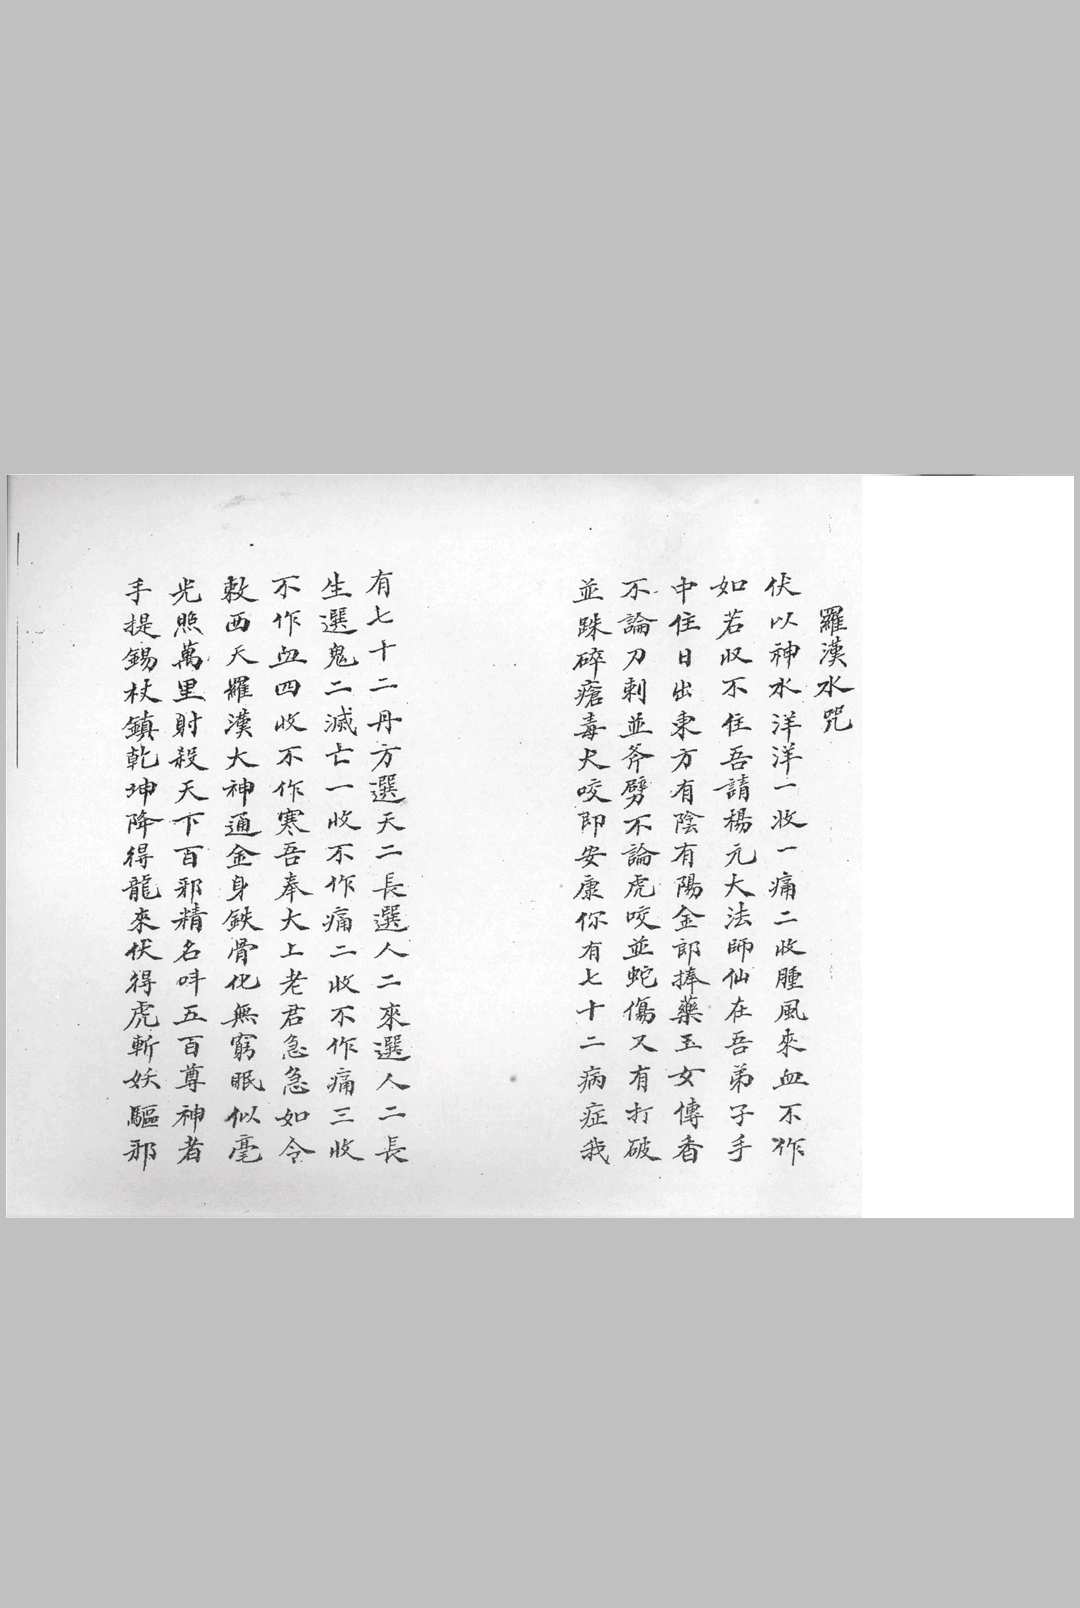 羅漢水咒
伏以神水洋洋一收一痛二收腫風來血不作
如若収不住吾請楊元大法師仙在吾弟子手
中住日出東方有陰有陽金郎捧藥玉女傳香
不論刀刺並斧劈不論虎咬並蛇傷又有打破
並跺碎瘡毒犬咬即安康你有七十二病症我
有七十二丹方選天二長選人二來選人二長
生選鬼二滅亡一收不作痛二收不作痛三收
不作血四收不作寒吾奉大上老君急急如令
敕西天羅漢大神通金身鉄骨化無窮眠似毫
光照萬里射殺天下百邪精名吽五百尊神者
手提錫杖鎮乾坤降得龍來伏得虎斬妖驅邪